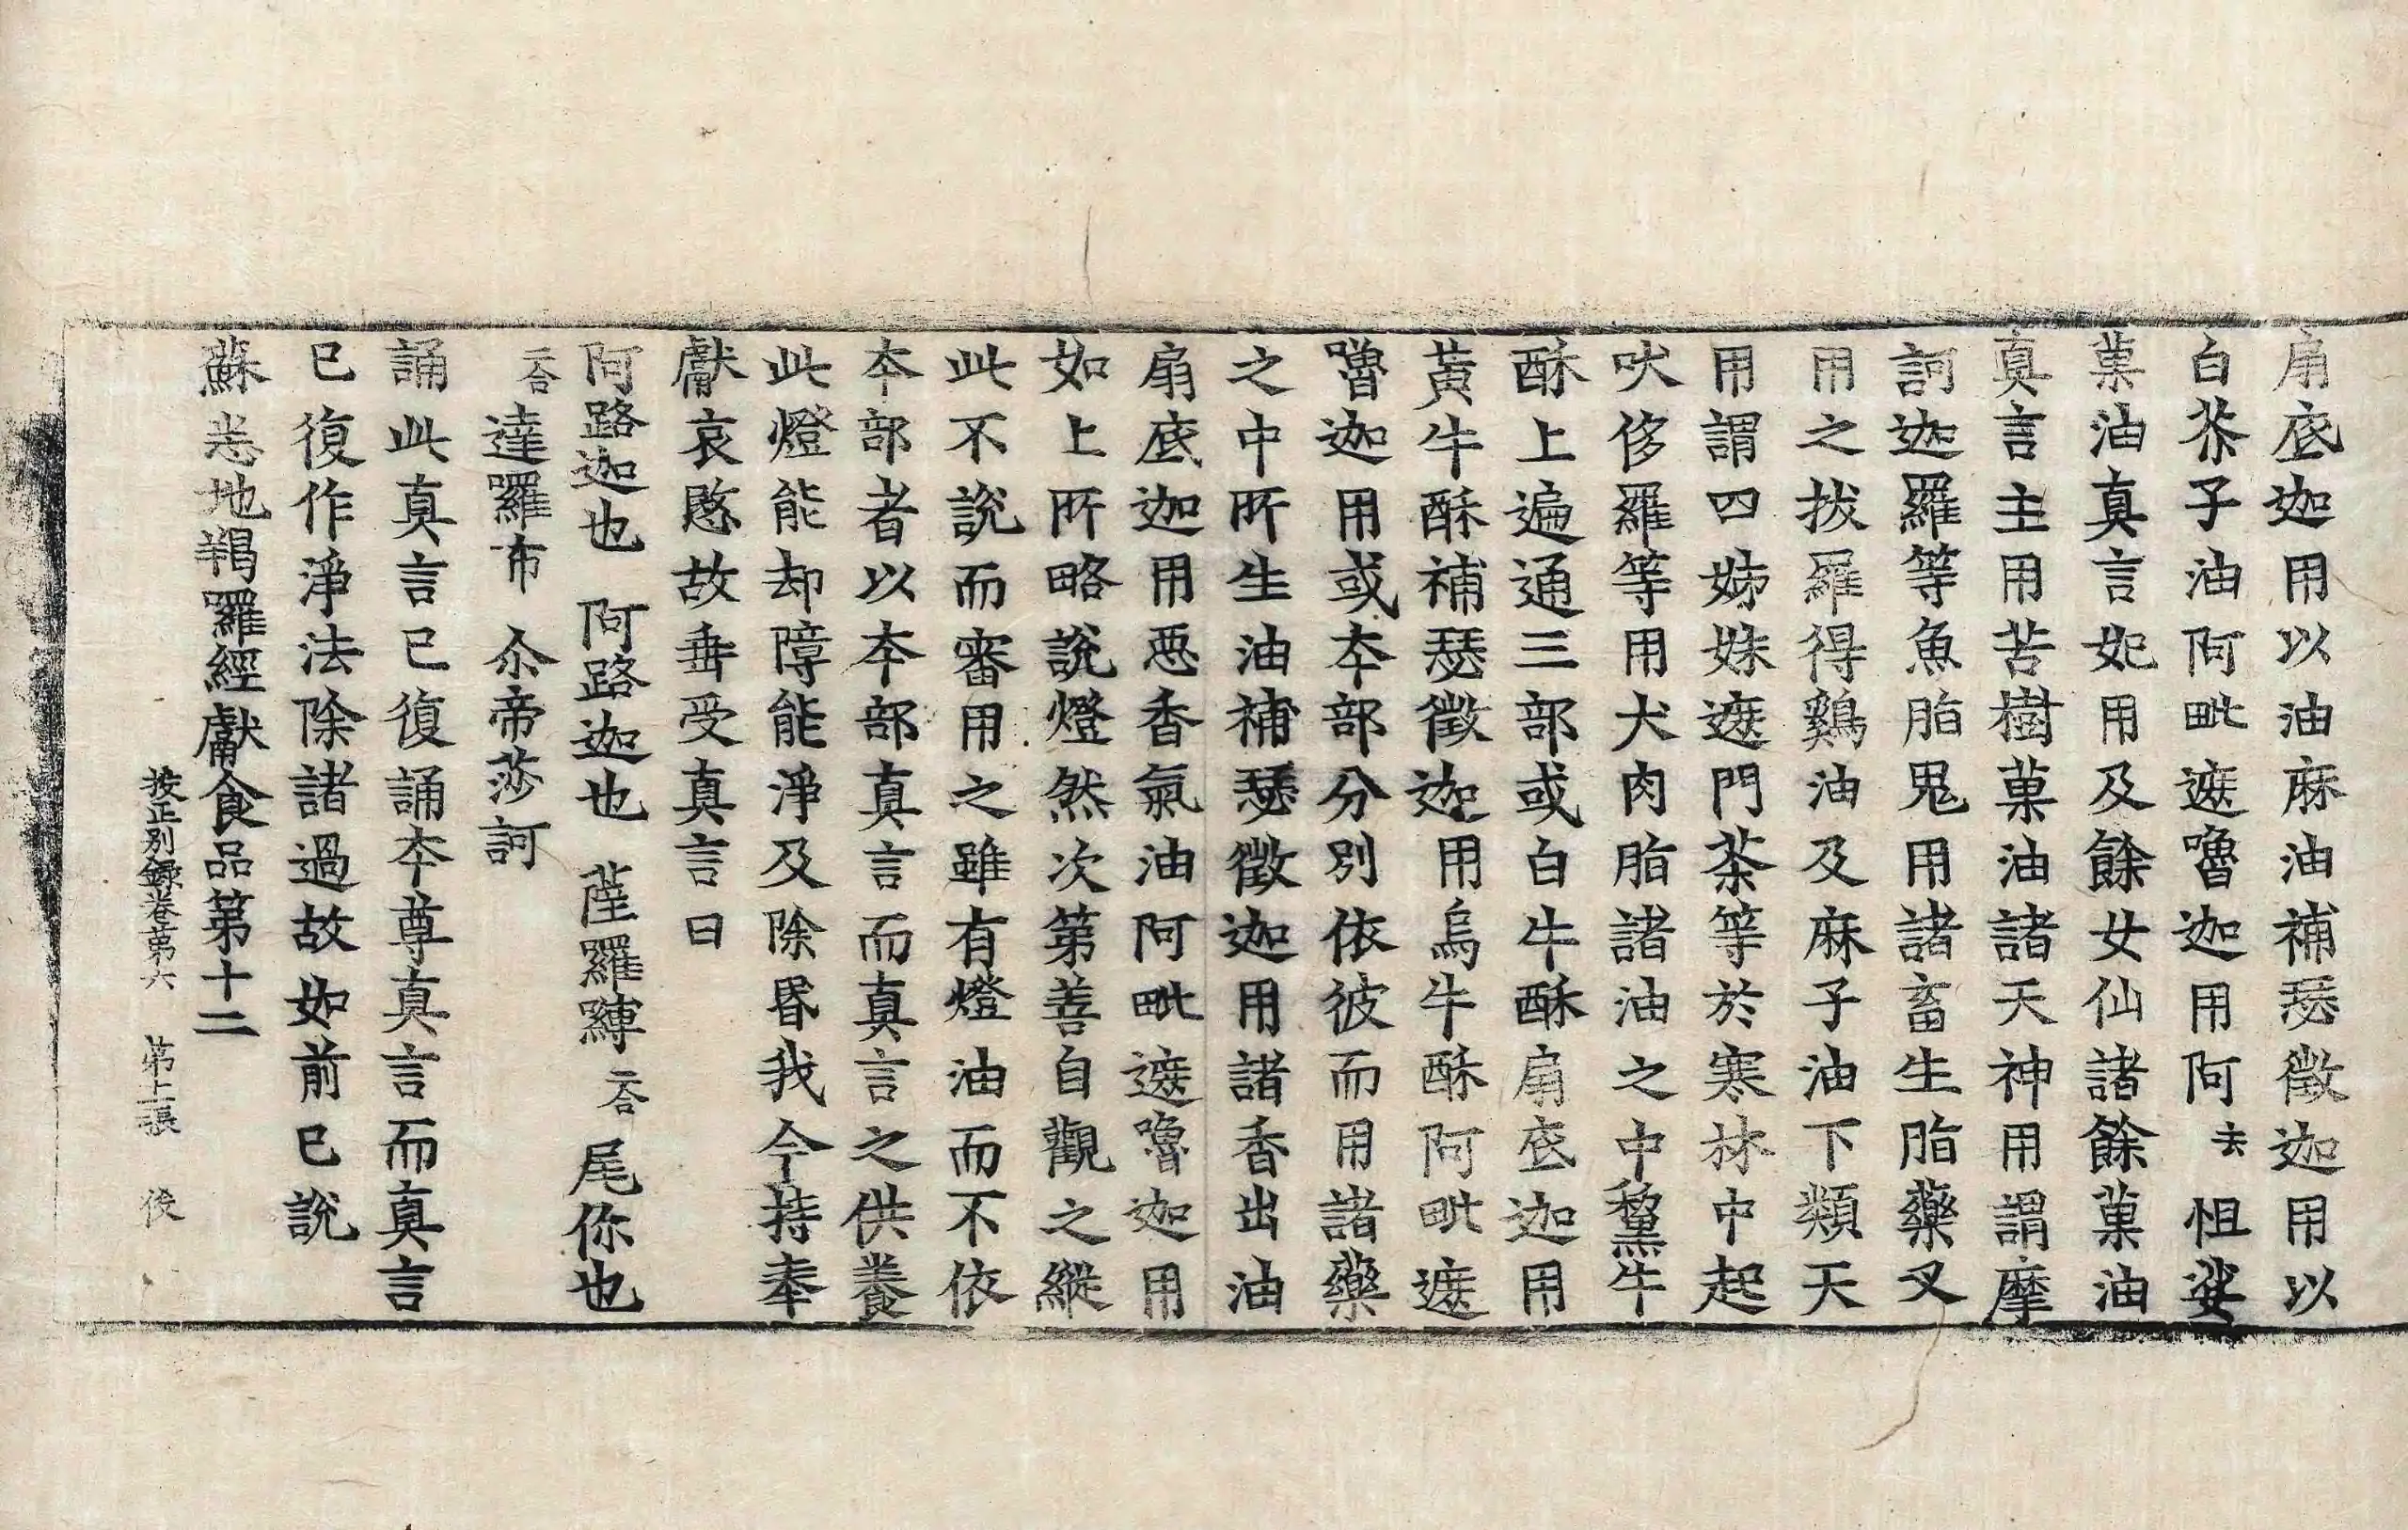 扇底迦用以油麻油補瑟徵迦用以
白芥子油阿毗遮嚕迦用阿去怛娑
菓油真言妃用及餘女仙諸餘菓油
真言主用苦樹菓油諸天神用謂摩
訶迦羅等魚脂鬼用諸畜生脂藥叉
用之拔羅得鷄油及麻子油下類天
用謂四姊妹遮門荼等於寒林中起
吠侈羅等用犬肉脂諸油之中黧牛
酥上遍通三部或白牛酥扇底迦用
黃牛酥補瑟徵迦用烏牛酥阿毗遮
嚕迦用或本部分別依彼而用諸藥
之中所生油補瑟徵迦用諸香出油
扇底迦用惡香氣油阿毗遮嚕迦用
如上所略說燈然次第善自觀之縱
此不說而審用之雖有燈油而不依
本部者以本部真言而真言之供養
此燈能却障能淨及除昏我今持奉
獻哀愍故垂受真言曰
阿路迦也 阿路迦也 薩羅縛二合尾你也
二合達羅布尒帝莎訶
誦此真言已復誦本尊真言而真言
已復作淨法除諸過故如前已說
蘇悉地羯羅經獻食品第十二
按正別錄卷第六 第上張 後